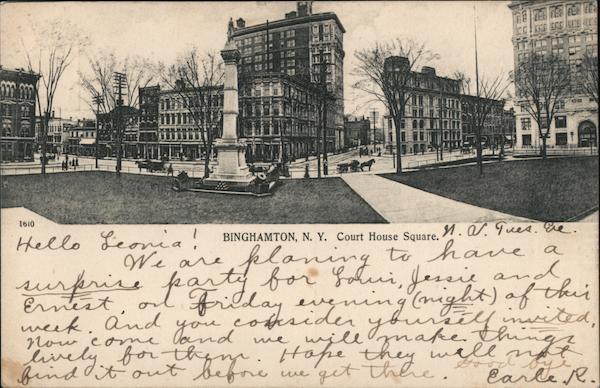 1610
BINGHAMTON, N. Y. Court House Square.
N. V. Tues. Eve.
Hello Leonia!
We are planing to have a
surprise party for Louis, Jessie and
Ernest, on Friday evening (night) of this
week. And you consider yourself invited.
Now come and we will make things
lively for them. Hope they will not
find it out before we get there. Good bye
Earle R.